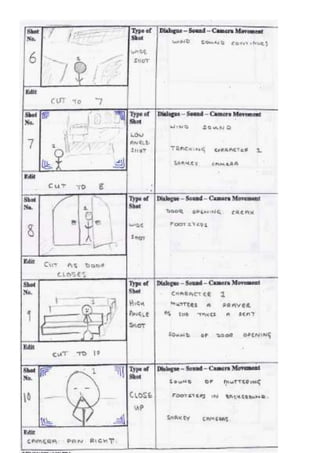 Shot No. Type of Shot Dialogue – Sound – Camera Movement
6
WIDE SHOT
WIND SOUND CONTINUES
Edit
CUT TO 7
Shot No. Type of Shot Dialogue – Sound – Camera Movement
7
1
LOW ANGLE SHOT
WIND SOUND
TRACKING CHARACTER 1
SHAKEY CAMERA
Edit
CUT TO 8
Shot No. Type of Shot Dialogue – Sound – Camera Movement
8
1
WIDE SHOT
DOOR OPENING CREAK
FOOTSTEPS
Edit
CUT AS DOOR
CLOSES
Shot No. Type of Shot Dialogue – Sound – Camera Movement
9
1
HIGH ANGLE SHOT
CHARACTER 1
MUTTERS A PRAYER
AS SHE TAKES A SEAT
SOUND OF DOOR OPENING
Edit
CUT TO 10
Shot No. Type of Shot Dialogue – Sound – Camera Movement
10
1
CLOSE UP
SOUND OF MUTTERING
FOOTSTEPS IN BACKGROUND.
SHAKEY CAMERA.
Edit
CAMERA PAN RIGHT.